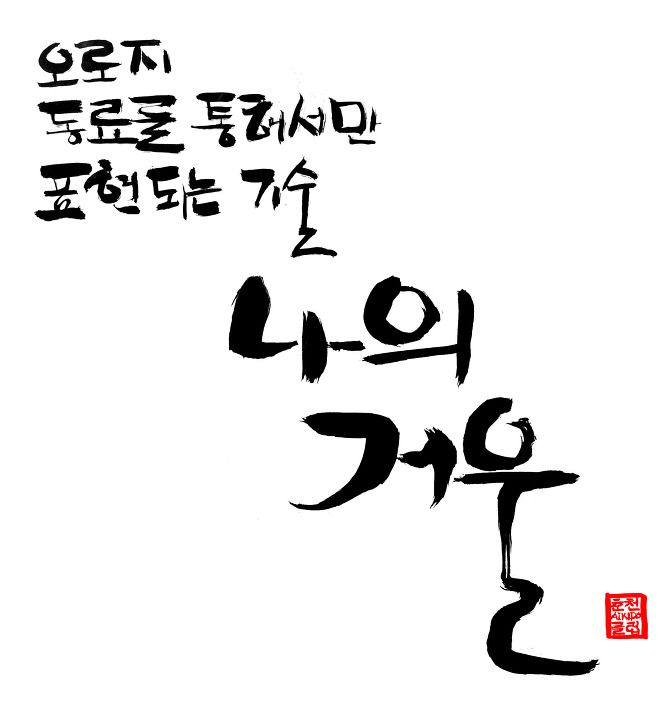 오로지
동료를 통해서만
표현되는 기술
나의
거울
춘천
AIKIDO
클럽